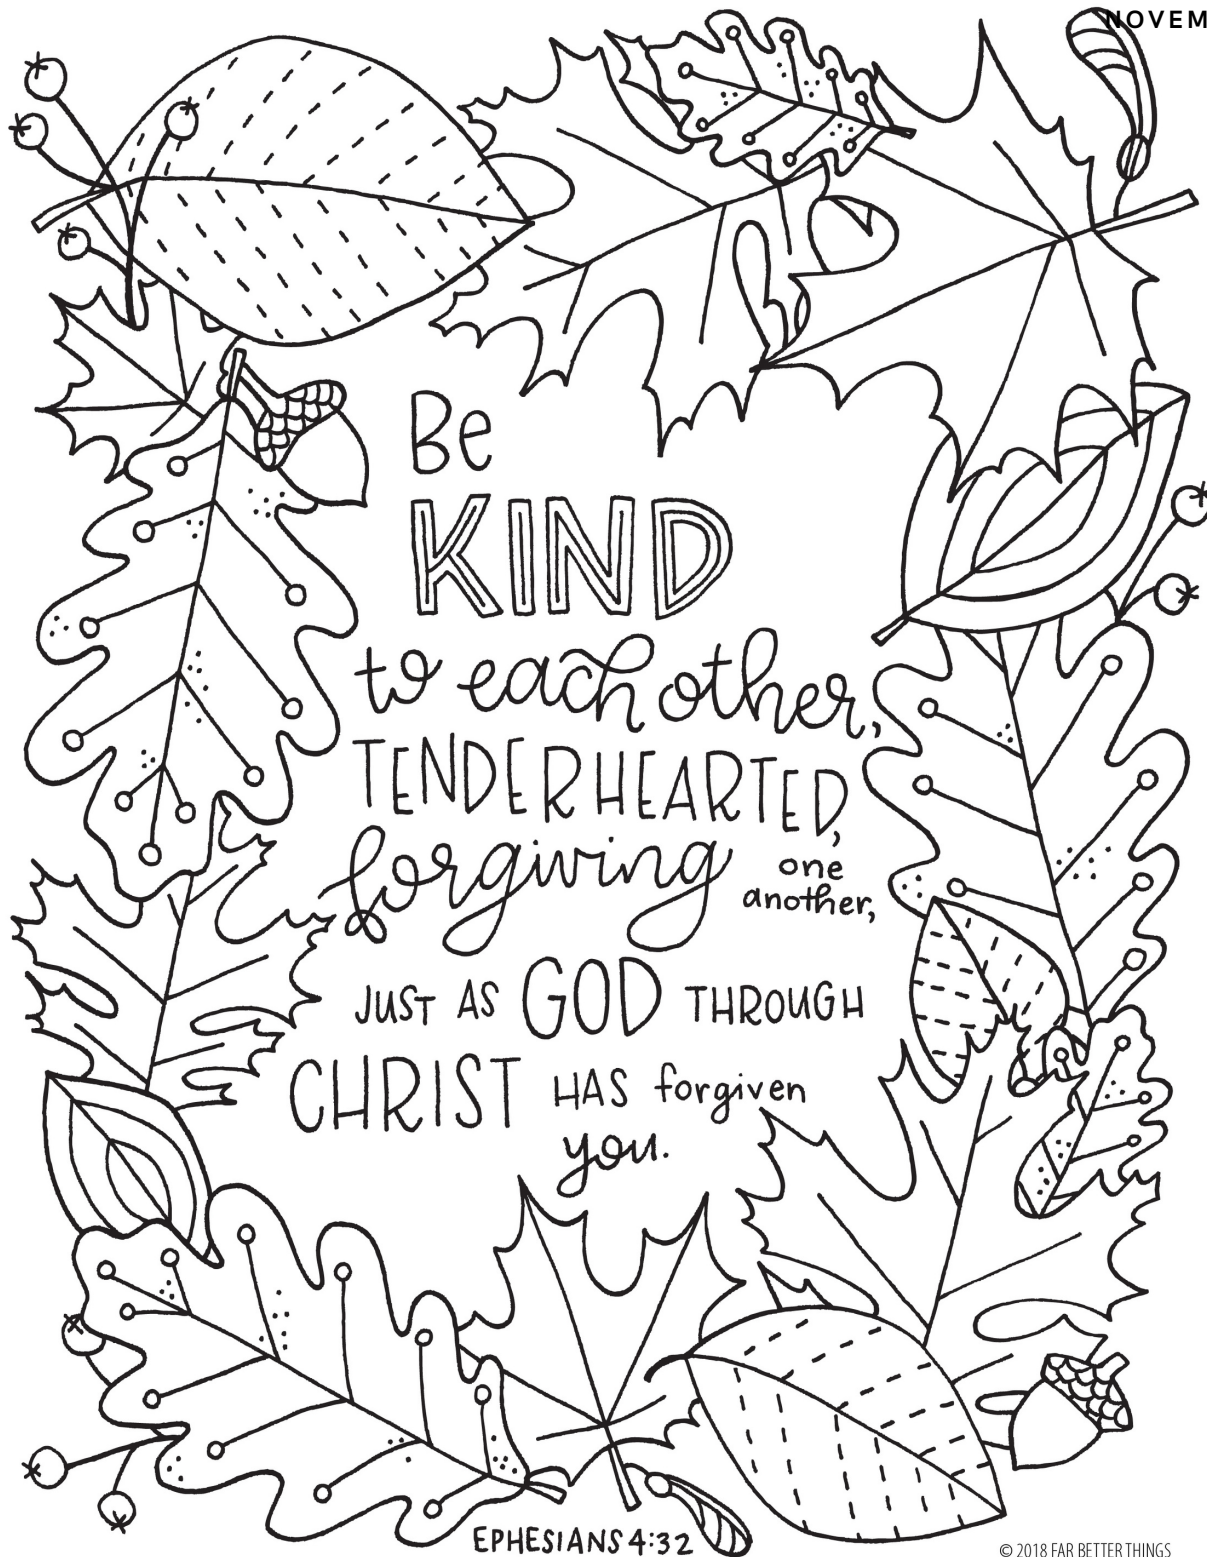 NOVEM
Be
KIND
to each other,
TENDERHEARTED,
forgiving one
another,
JUST AS GOD THROUGH
CHRIST HAS forgiven
you.
EPHESIANS 4:32
© 2018 FAR BETTER THINGS